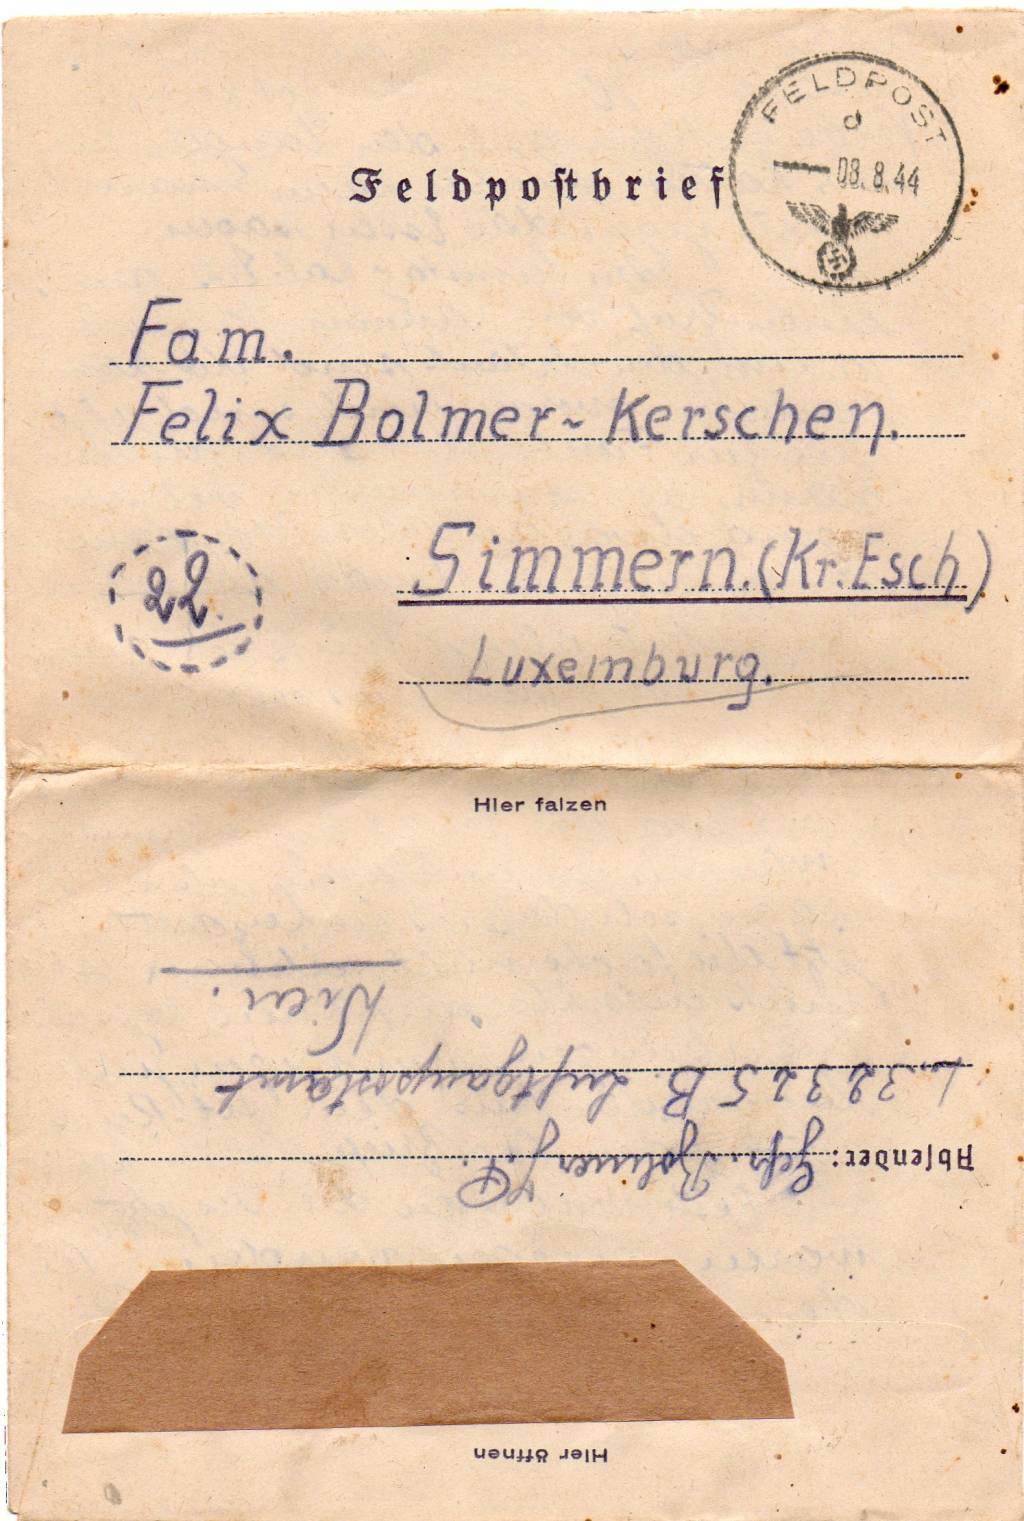 FELDPOST
d
08.8.44
Feldpostbrief
Fam.
Felix Bolmer~Kerschen.
22.
Simmern.(Kr.Esch)
Luxemburg.
Hier falzen
Absender: Gefr. Bolmer J.P.
L.32325 B. Luftgaupostamt
Wien.
Hier öffnen